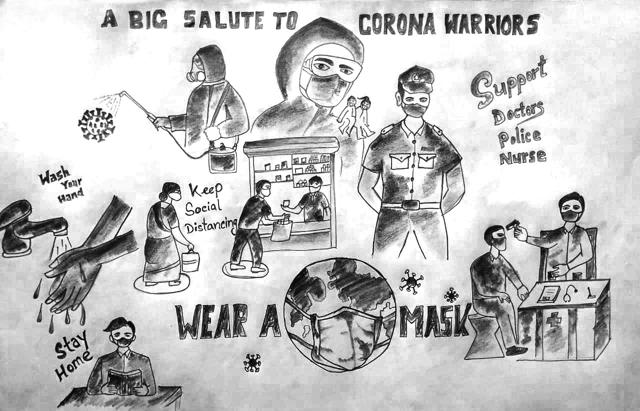 A BIG SALUTE TO CORONA WARRIORS
Support
Doctors
Police
Nurse
Wash
Your
Hand
Keep
Social
Distancing
WEAR A MASK
Stay
Home